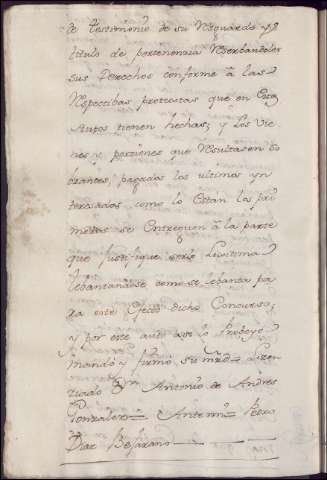 de testimonio de su Resguardo y
titulo de pertenencia Reserbandoles
sus Derechos conforme â las
Respectibas protextas que en estos
Autos tienen hechas; y los vie-
nes y porziones que Resultasen so-
brantes, pagados los ultimos yn-
teresados, como lo estan los pri-
meros se entreguen â la parte
que justifique serlo Lexitima
lebantandose como se lebanta pa-
ra este efecto dicho Concurso;
y por este auto asi lo Probeyo
mando y firmó su mrd= Licen-
ciado Dn Antonio de Andres
Gonzalez= Ante mi= Pedro
Diaz Bejarano